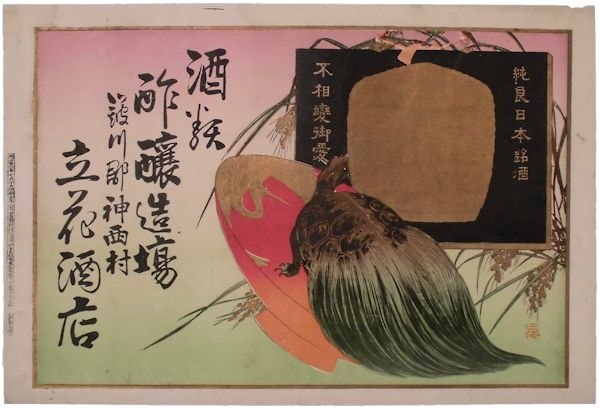 純良日本銘酒
不相變御愛
酒類
酢釀造塲
簸川郡神西村
立花酒店